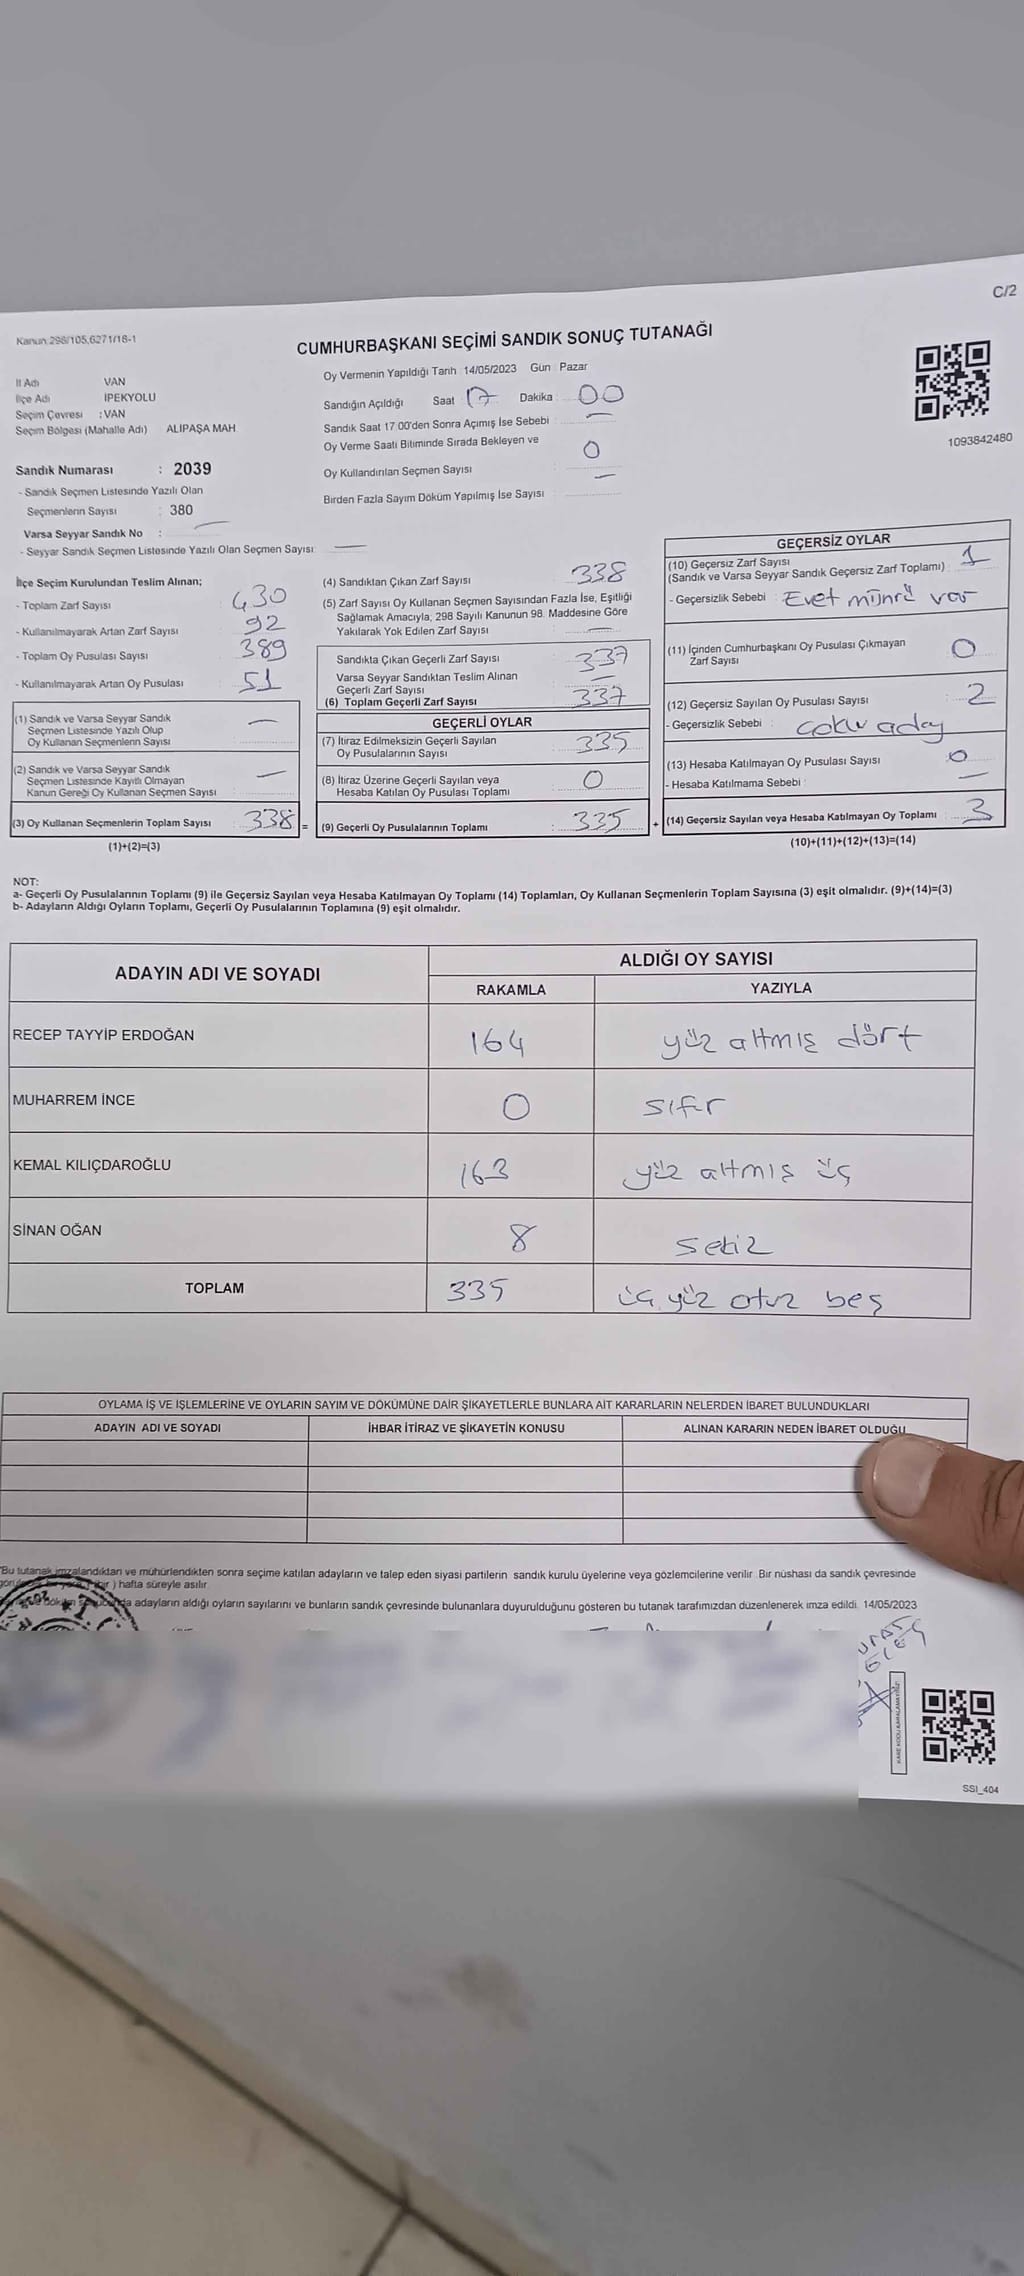 C/2
Kanun 298/105,6271/18-1
CUMHURBAŞKANI SEÇİMİ SANDIK SONUÇ TUTANAĞI
İl Adı VAN
İlçe Adı İPEKYOLU
Seçim Çevresi : VAN
Seçim Bölgesi (Mahalle Adı) ALİPAŞA MAH
Sandık Numarası : 2039
- Sandık Seçmen Listesinde Yazılı Olan
Seçmenlerin Sayısı : 380
Varsa Seyyar Sandık No :
- Seyyar Sandık Seçmen Listesinde Yazılı Olan Seçmen Sayısı:
Oy Vermenin Yapıldığı Tarih 14/05/2023 Gün : Pazar
Sandığın Açıldığı Saat 17 Dakika : 00
Sandık Saat 17.00'den Sonra Açımış İse Sebebi :
Oy Verme Saati Bitiminde Sırada Bekleyen ve
Oy Kullandırılan Seçmen Sayısı : 0
Birden Fazla Sayım Döküm Yapılmış İse Sayısı
1093842480
İlçe Seçim Kurulundan Teslim Alınan;
- Toplam Zarf Sayısı 430
- Kullanılmayarak Artan Zarf Sayısı : 92
- Toplam Oy Pusulası Sayısı 389
- Kullanılmayarak Artan Oy Pusulası 51
(1) Sandık ve Varsa Seyyar Sandık
Seçmen Listesinde Yazılı Olup
Oy Kullanan Seçmenlerin Sayısı :
(2) Sandık ve Varsa Seyyar Sandık
Seçmen Listesinde Kayıtlı Olmayan
Kanun Gereği Oy Kullanan Seçmen Sayısı :
(3) Oy Kullanan Seçmenlerin Toplam Sayısı : 338 =
(1)+(2)=(3)
(4) Sandıktan Çıkan Zarf Sayısı : 338
(5) Zarf Sayısı Oy Kullanan Seçmen Sayısından Fazla İse, Eşitliği
Sağlamak Amacıyla; 298 Sayılı Kanunun 98. Maddesine Göre
Yakılarak Yok Edilen Zarf Sayısı :
Sandıkta Çıkan Geçerli Zarf Sayısı : 337
Varsa Seyyar Sandıktan Teslim Alınan
Geçerli Zarf Sayısı
(6) Toplam Geçerli Zarf Sayısı : 337
GEÇERLİ OYLAR
(7) İtiraz Edilmeksizin Geçerli Sayılan
Oy Pusulalarının Sayısı : 335
(8) İtiraz Üzerine Geçerli Sayılan veya
Hesaba Katılan Oy Pusulası Toplamı : 0
(9) Geçerli Oy Pusulalarının Toplamı : 335 +
GEÇERSİZ OYLAR
(10) Geçersiz Zarf Sayısı
(Sandık ve Varsa Seyyar Sandık Geçersiz Zarf Toplamı) : 1
- Geçersizlik Sebebi : Evet mührü var
(11) İçinden Cumhurbaşkanı Oy Pusulası Çıkmayan
Zarf Sayısı : 0
(12) Geçersiz Sayılan Oy Pusulası Sayısı : 2
- Geçersizlik Sebebi :
(13) Hesaba Katılmayan Oy Pusulası Sayısı : 0
- Hesaba Katılmama Sebebi :
(14) Geçersiz Sayılan veya Hesaba Katılmayan Oy Toplamı : 3
(10)+(11)+(12)+(13)=(14)
NOT:
a- Geçerli Oy Pusulalarının Toplamı (9) ile Geçersiz Sayılan veya Hesaba Katılmayan Oy Toplamı (14) Toplamları, Oy Kullanan Seçmenlerin Toplam Sayısına (3) eşit olmalıdır. (9)+(14)=(3)
b- Adayların Aldığı Oyların Toplamı, Geçerli Oy Pusulalarının Toplamına (9) eşit olmalıdır.
ADAYIN ADI VE SOYADI ALDIĞI OY SAYISI
RAKAMLA YAZIYLA
RECEP TAYYİP ERDOĞAN 164 yüz altmış dört
MUHARREM İNCE 0 sıfır
KEMAL KILIÇDAROĞLU 163 yüz altmış üç
SİNAN OĞAN 8 sekiz
TOPLAM 335 üç yüz otuz beş
OYLAMA İŞ VE İŞLEMLERİNE VE OYLARIN SAYIM VE DÖKÜMÜNE DAİR ŞİKAYETLERLE BUNLARA AİT KARARLARIN NELERDEN İBARET BULUNDUKLARI
ADAYIN ADI VE SOYADI İHBAR İTİRAZ VE ŞİKAYETİN KONUSU ALINAN KARARIN NEDEN İBARET OLDUĞU
"Bu tutanak imzalandıktan ve mühürlendikten sonra seçime katılan adayların ve talep eden siyasi partilerin sandık kurulu üyelerine veya gözlemcilerine verilir. Bir nüshası da sandık çevresinde
(bir) hafta süreyle asılır
adayların aldığı oyların sayılarını ve bunların sandık çevresinde bulunanlara duyurulduğunu gösteren bu tutanak tarafımızdan düzenlenerek imza edildi. 14/05/2023
KARE KODU KARALAMAYINIZ!
SSI_404